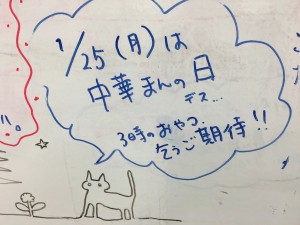 1/25(月)は
中華まんの日
デス...
3時のおやつ、
乞うご期待!!